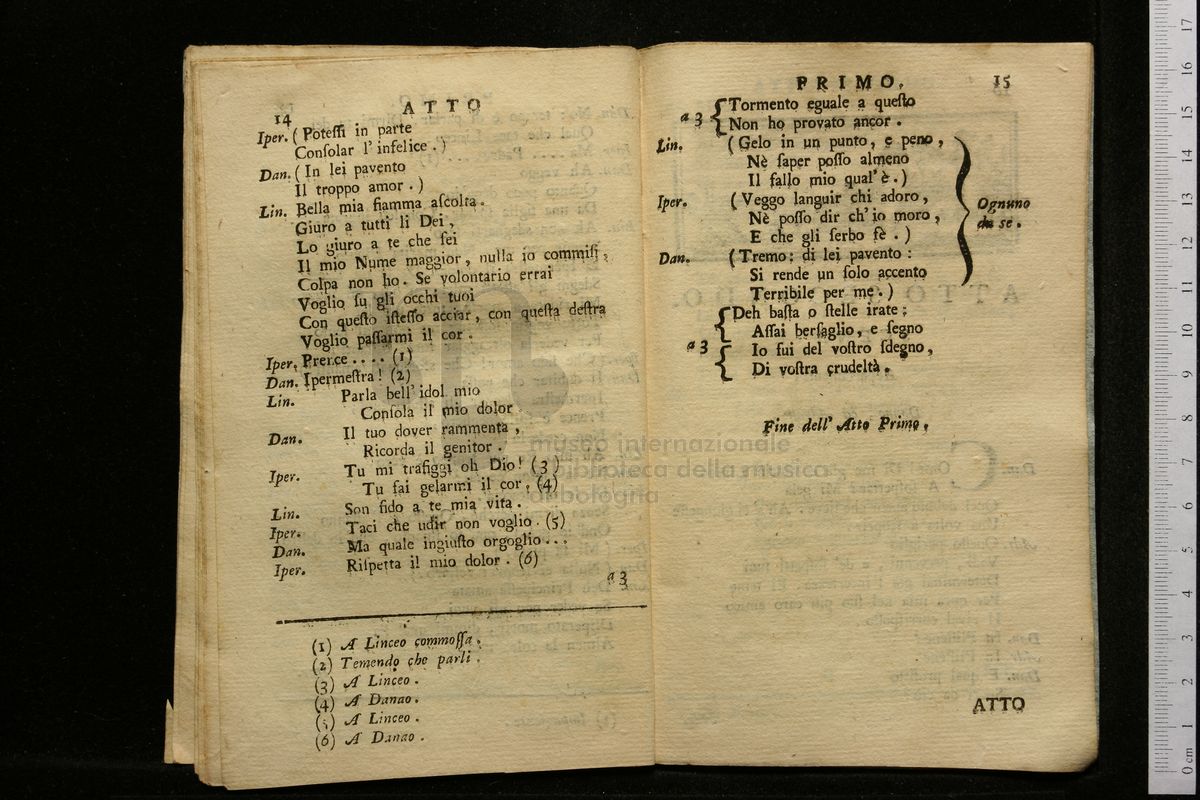 14 ATTO
Iper. ( Poteſſi in parte
Conſolar l' infelice . )
Dan. ( In lei pavento
Il troppo amor . )
Lin. Bella mia fiamma aſcolta .
Giuro a tutti li Dei ,
Lo giuro a te che ſei
Il mio Nume maggior , nulla io commiſi ,
Colpa non ho . Se volontario errai
Voglio ſu gli occhi tuoi
Con queſto iſteſſo acciar , con queſta deſtra
Voglio paſſarmi il cor .
Iper. Prence .... (1)
Dan. Ipermeſtra ! (2)
Lin. Parla bell' idol mio
Conſola il mio dolor .
Dan. Il tuo dover rammenta ,
Ricorda il genitor .
Iper. Tu mi trafiggi oh Dio ! (3)
Tu fai gelarmi il cor . (4)
Lin. Son fido a te mia vita .
Iper. Taci che udir non voglio . (5)
Dan. Ma quale ingiuſto orgoglio ...
Iper. Riſpetta il mio dolor . (6)
a 3
(1) A Linceo commoſſa .
(2) Temendo che parli .
(3) A Linceo .
(4) A Danao .
(5) A Linceo .
(6) A Danao .
PRIMO. 15
a 3 { Tormento eguale a queſto
Non ho provato ancor .
Lin. ( Gelo in un punto , e peno ,
Nè ſaper poſſo almeno
Il fallo mio qual' è . )
Iper. ( Veggo languir chi adoro ,
Nè poſſo dir ch' io moro ,
E che gli ſerbo fè . )
Ognuno
da se .
Dan. ( Tremo : di lei pavento :
Si rende un ſolo accento
Terribile per me . )
a 3 { Deh baſta o ſtelle irate ;
Aſſai berſaglio , e ſegno
Io fui del voſtro ſdegno ,
Di voſtra crudeltà .
Fine dell' Atto Primo .
ATTO
museo internazionale
biblioteca della musica
di bologna
0 cm 1 2 3 4 5 6 7 8 9 10 11 12 13 14 15 16 17